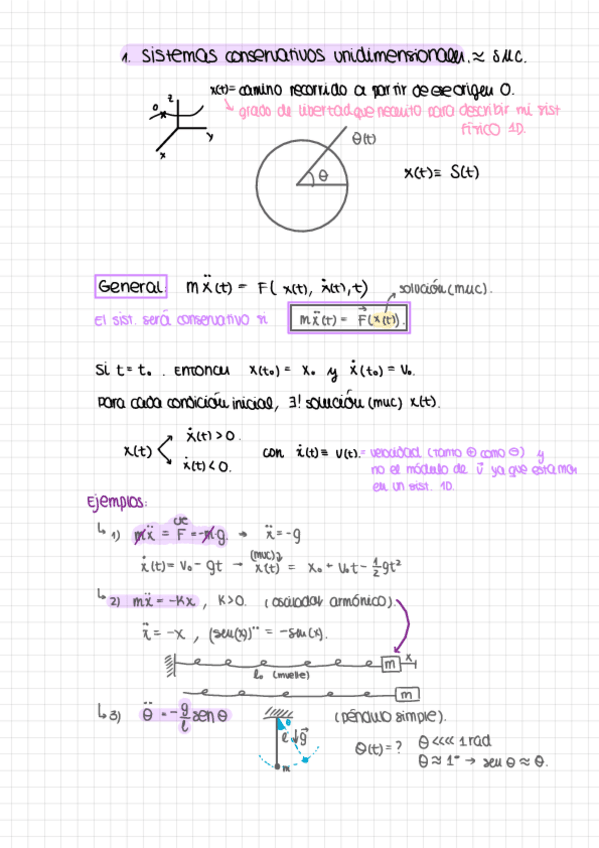 1. Sistemas conservativos unidimensionales. ≈ SUC.
x(t)= camino recorrido a partir de ese origen O.
↳ grado de libertad que necesito para describir mi sist
físico 1D.
z
O
x
y
θ(t)
θ
x(t) ≡ S(t)
General: mẍ(t) = F( x(t), ẋ(t), t) solución (muc).
El sist. será conservativo si mẍ(t) = F⃗(x(t)).
Si t = t₀. Entonces x(t₀) = x₀ y ẋ(t₀) = v₀.
para cada condición inicial, ∃! solución (muc) x(t).
ẋ(t) > 0.
x(t)
ẋ(t) < 0.
con ẋ(t) ≡ v(t). = velocidad (tanto ⊕ como ⊖) y
no el módulo de v⃗ ya que estamos
en un sist. 1D.
Ejemplos:
↳ 1) mẍ = F = -mg. → ẍ = -g
ẋ(t) = v₀ - gt → x(t) = x₀ + v₀t - 1/2 gt²
(muc)
↳ 2) mẍ = -Kx, K>0. (oscilador armónico).
ẍ = -x, (sen(x))¨ = -sen(x).
m x
l₀ (muelle)
m
↳ 3) θ̈ = -g/l sen θ (péndulo simple).
θ
l ↓g⃗
m
θ(t) = ? θ <<<< 1 rad
θ ≈ 1° → sen θ ≈ θ.